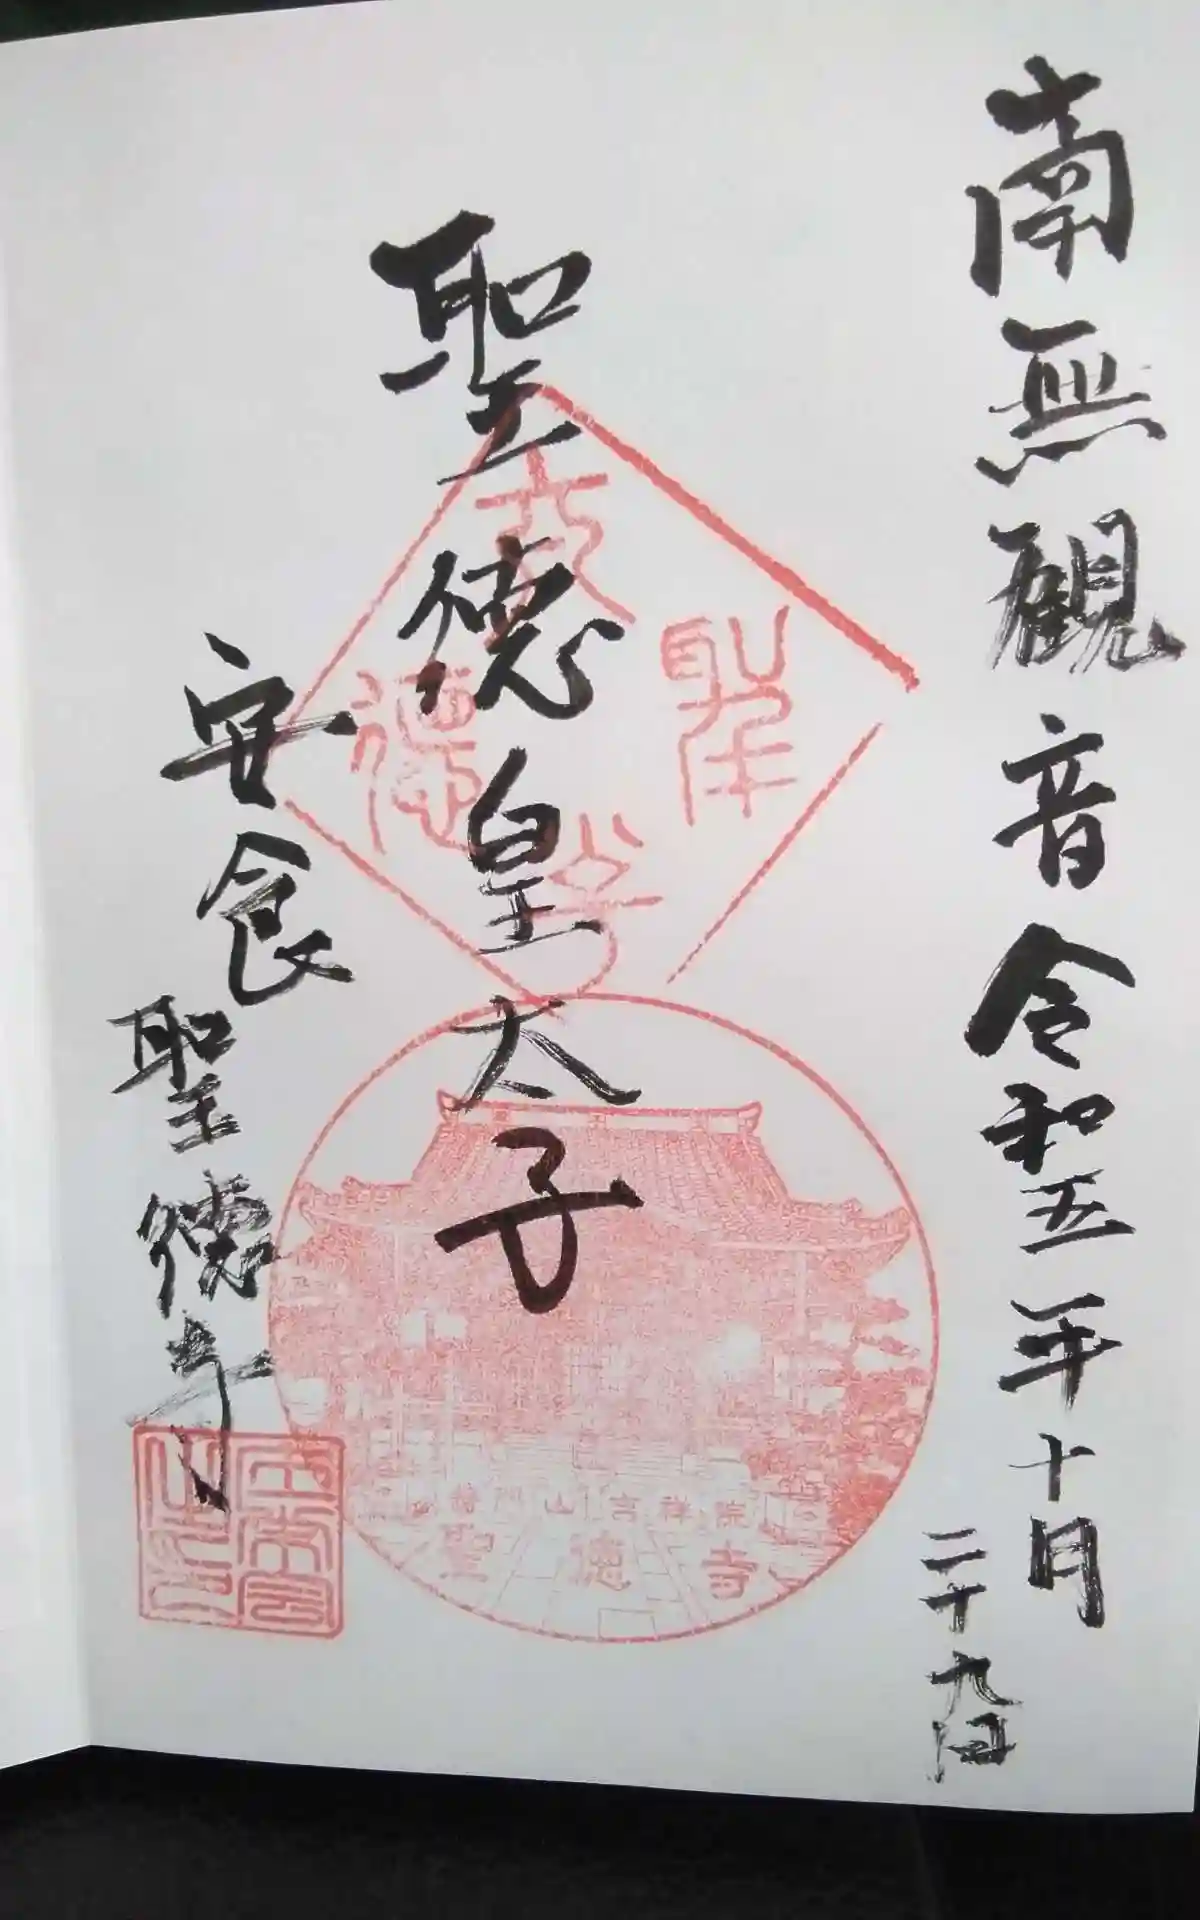 南無観音 令和五年十月
二十九日
聖徳皇太子
安食
聖徳寺
聖
徳
太
子
山吉祥院
聖徳寺